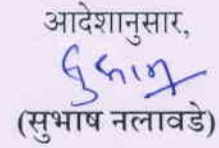 आदेशानुसार,
(सुभाष नलावडे)